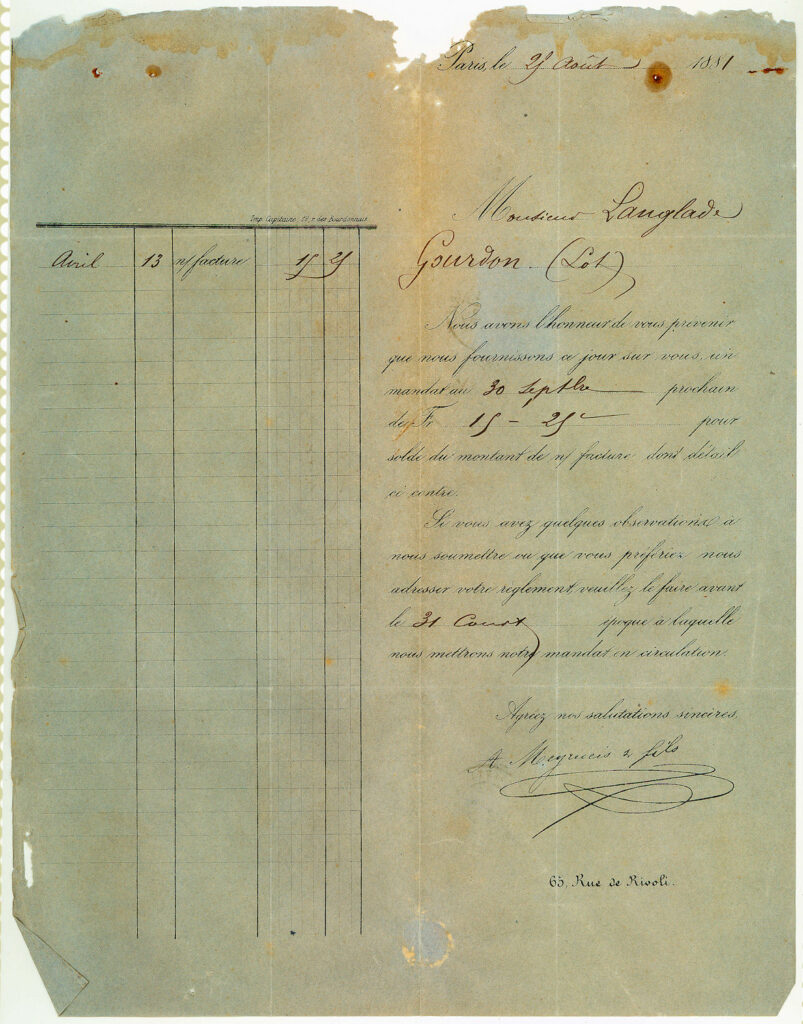 Paris, le 25 Août 1881
Imp. Capitaine, r. des Bourdonnais
Monsieur Langlade
Avril 13 n/ facture 15 25
Gourdon (Lot)
Nous avons l'honneur de vous prévenir
que nous fournissons ce jour sur vous, un
mandat au 30 Septbre prochain
de Fr 15 - 25c pour
solde du montant de n/ facture dont détail
ci contre.
Si vous avez quelques observations à
nous soumettre ou que vous préfériez nous
adresser votre règlement, veuillez le faire avant
le 31 Court époque à laquelle
nous mettrons notre mandat en circulation.
Agréez nos salutations sincères.
A. & fils
65, Rue de Rivoli.